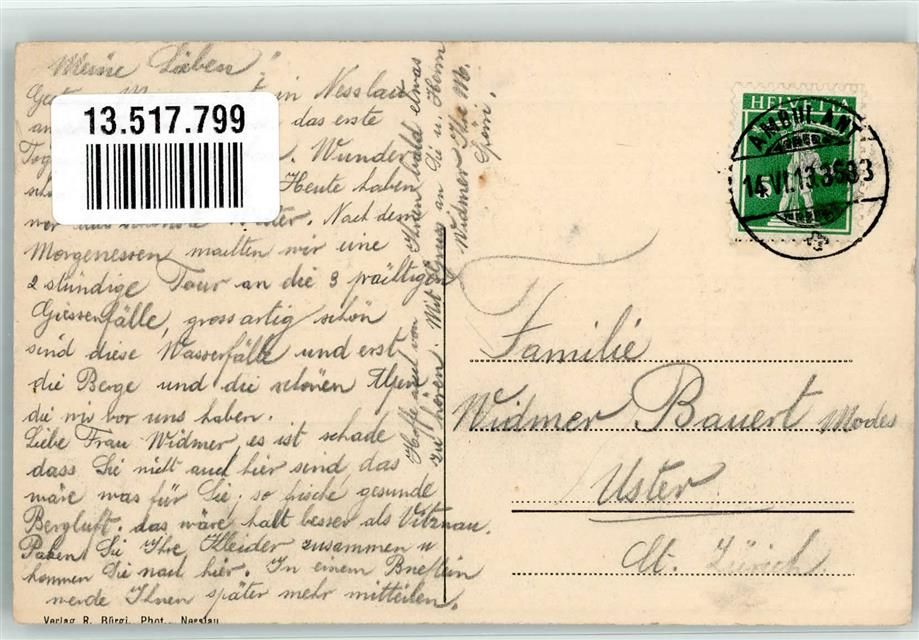 Meine Lieben!
in Nesslau
das erste
Wunder
Heute haben
wir das schönste Wetter. Nach dem
Morgenessen machten wir eine
2 stündige Tour an die 3 prächtigen
Giessenfälle, grossartig schön
sind diese Wasserfälle und erst
die Berge und die schönen Alpen
die wir vor uns haben.
Liebe Frau Widmer, es ist schade
dass Sie nicht auch hier sind, das
wäre was für Sie, so frische, gesunde
Bergluft. das wäre halt besser als Vitznau.
Paken Sie Ihre Kleider zusammen u
kommen Sie nach hier. In einem Brieflein
werde Ihnen später mehr mitteilen.
Hoffe auch von Ihnen bald etwas
zu hören. Mit Gruss an Sie u. Herrn
Widmer Ihre M.
13.517.799
HELVETIA
AMBULANT
14.VI.13
Familie
Widmer Bauert Modes
Uster
Kt. Zürich.
Verlag R. Bürgi, Phot., Nesslau